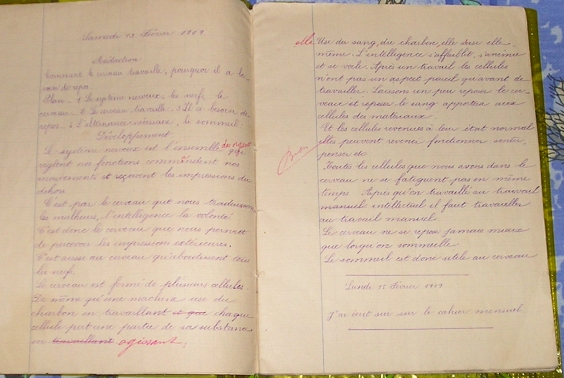 Samedi 13 Février 1909
Rédaction
Comment le cerveau travaille, pourquoi il a be
soin de repos.
Plan: 1 Le système nerveux, les nerfs, le
cerveau. 2 Le cerveau travaille. 3 Il a besoin de
repos. 4 L'alternance nécessaire, le sommeil.
Développement
Le système nerveux est l'ensemble des organes qui
règlent nos fonctions, commandent nos
mouvements et reçoivent les impressions du
dehors.
C'est par le cerveau que nous traduisons
les malheurs, l'intelligence la volonté
C'est donc le cerveau que nous permet
de percevoir les impressions extérieures.
C'est aussi au cerveau qu'aboutissent tous
les nerfs.
Le cerveau est formé de plusieurs cellules
De même qu'une machine use du
charbon en travaillant et que chaque
cellule perd une partie de sa substance
en travaillant agissant,
elle Use du sang, du charbon, elle s'use elle
même. L'intelligence s'affaiblit, s'anime
et se vide. Après un travail les cellules
n'ont pas un aspect pareil qu'avant de
travailler. Laissons un peu reposer le cer
veau et reposer le sang apportera aux
cellules des matériaux.
Et les cellules revenues à leur état normal
elles peuvent revenir fonctionner,
penser etc.
Toutes les cellules que nous avons dans le
cerveau ne se fatiguent pas en même
temps. Après qu'on travaille au travail
manuel intellectuel il faut travailler
au travail manuel.
Le cerveau ne se repose jamais mieux
que lorsqu'on sommeille
Le sommeil est donc utile au cerveau
Lundi 15 Février 1909
J'ai écrit sur le cahier mensuel